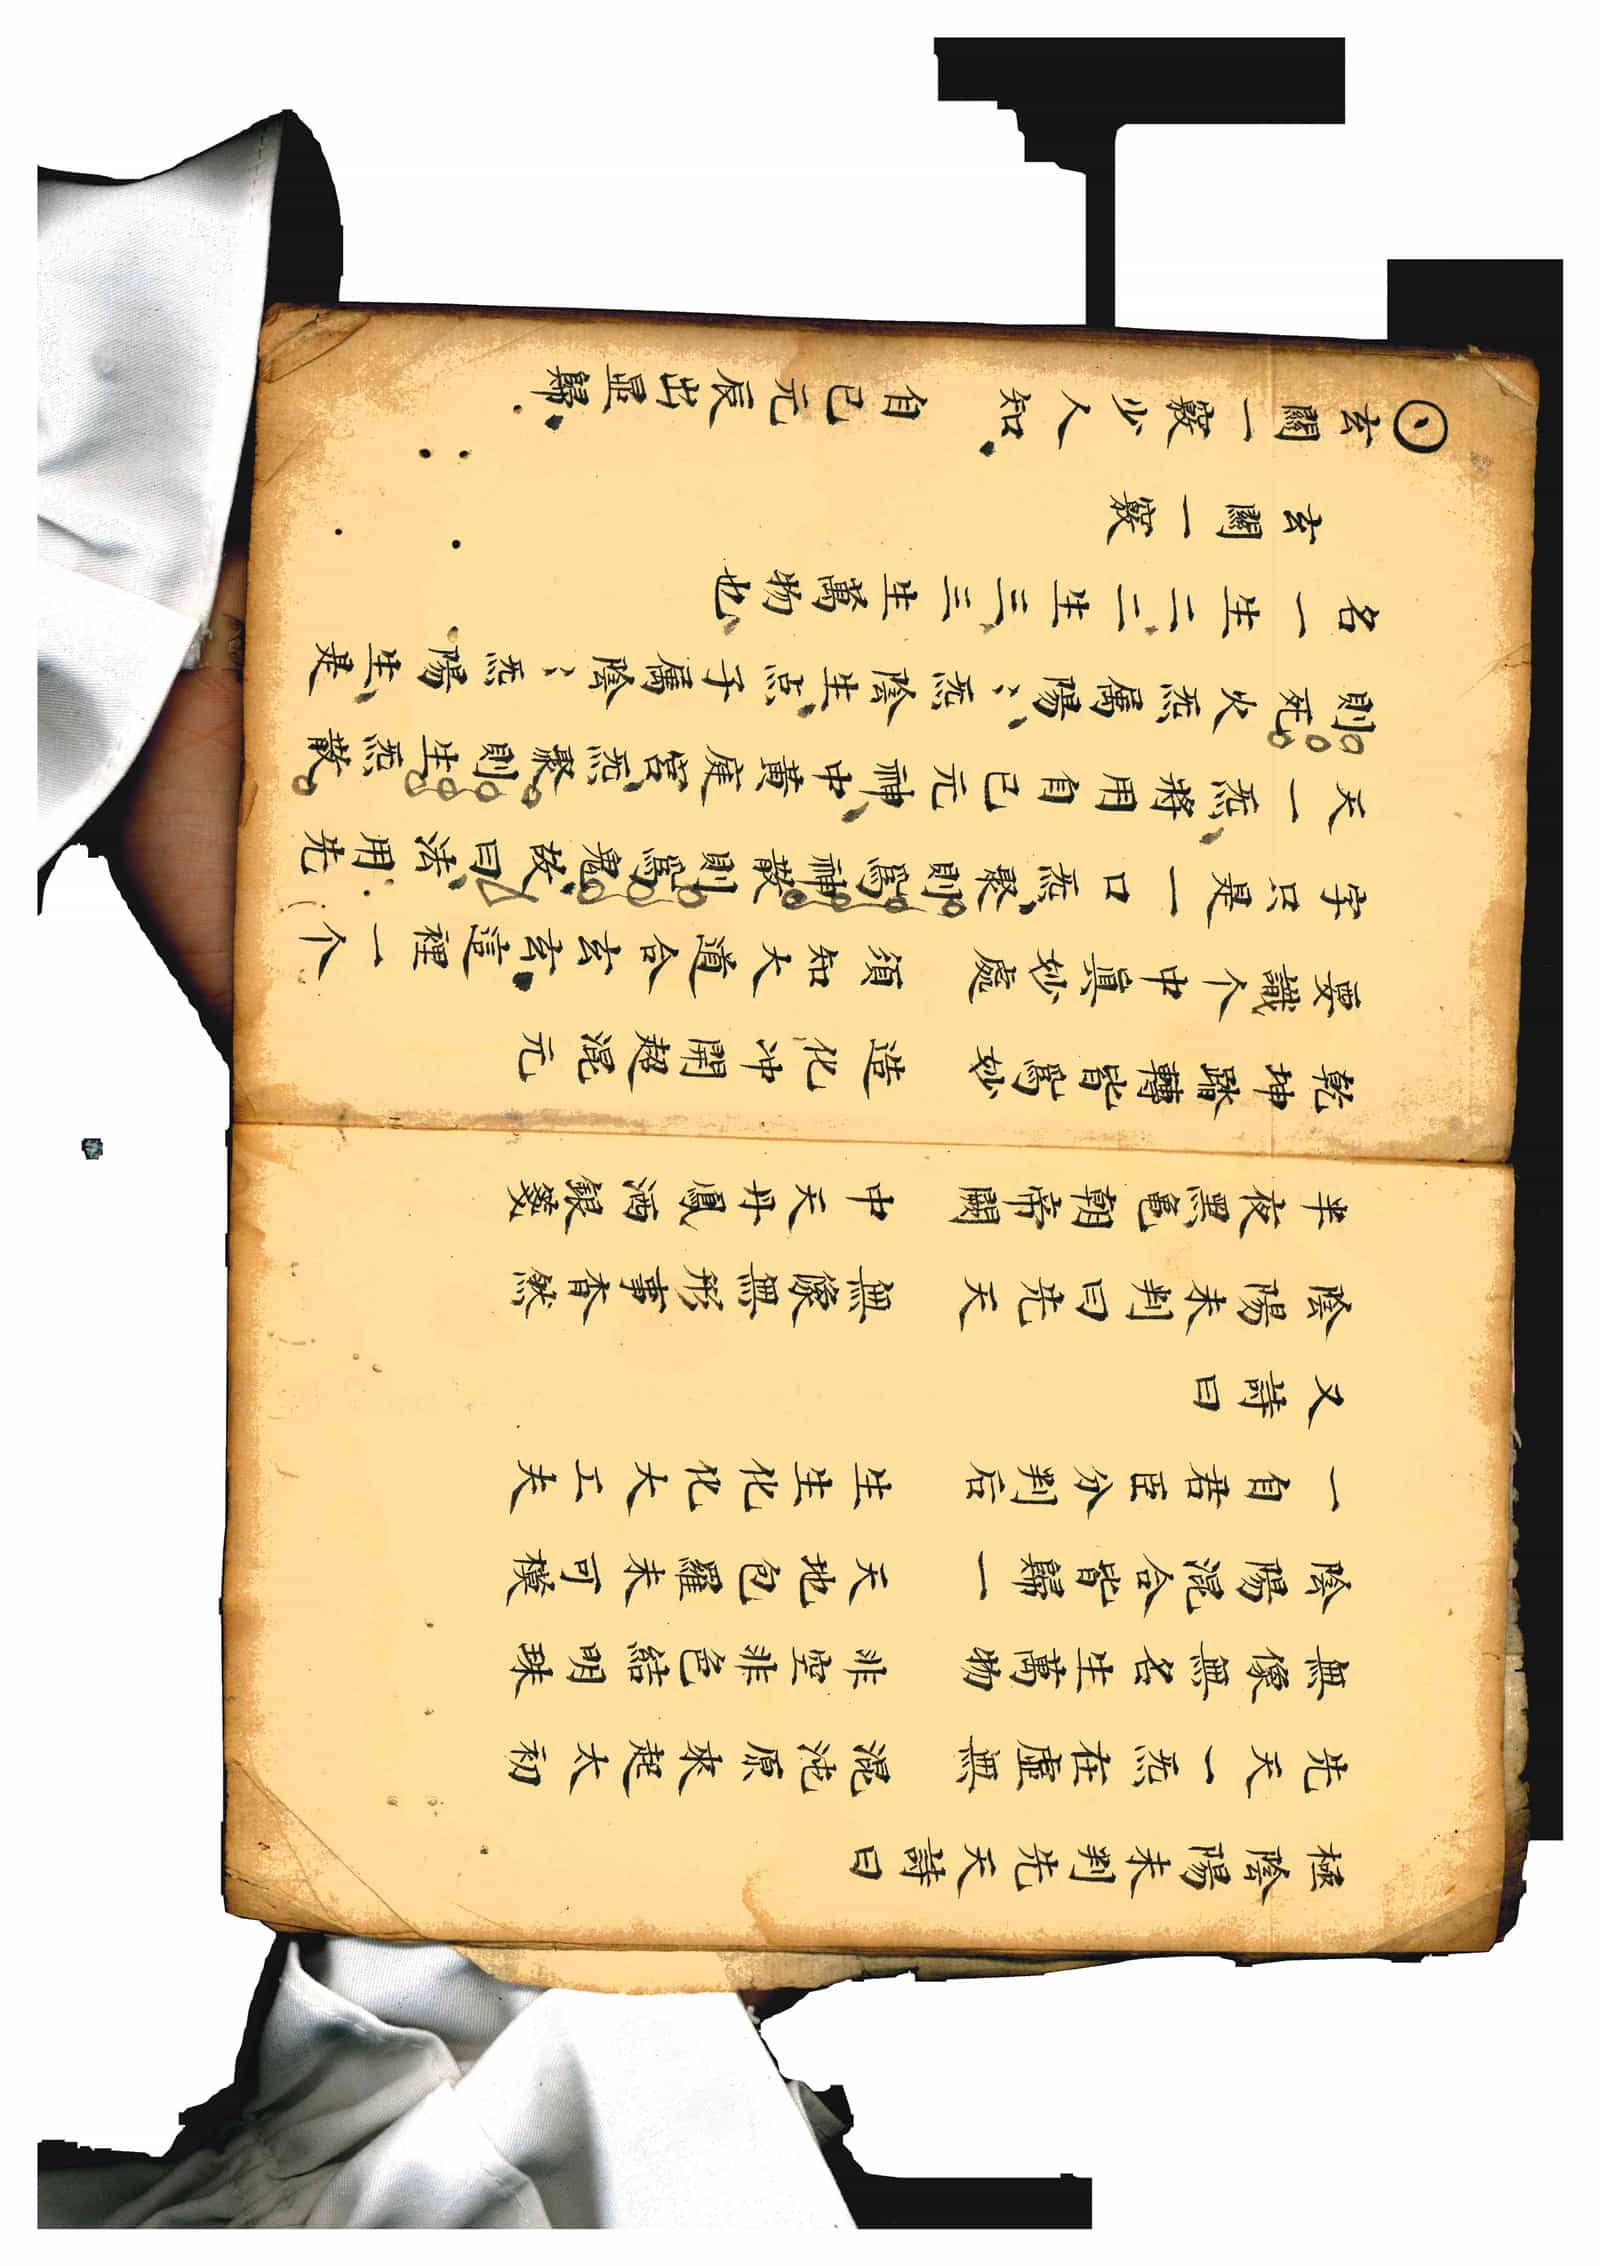 極陰陽未判先天詩曰
先天一炁在虛無　混沌原來起太初
無像無名生萬物　非空非色結明珠
陰陽混合皆歸一　天地包羅未可模
一自君臣分判后　生生化化大工夫
又詩曰
陰陽未判曰先天　無像無形事杳然
半夜黑龜朝帝闕　中天丹鳳洒銀箋
乾坤踏轉皆爲妙　造化冲開超混元
要識个中眞妙處　須知大道合玄玄這裡一个
字只是一口炁聚則爲神散則爲鬼故曰法用先
天一炁將用自己元神中黃庭宮炁聚則生炁散
則死火炁属陽、炁陰生点子属陰、炁陽生是
名一生二二生三三生萬物也
玄關一竅
玄關一竅少人知　自己元辰出显歸